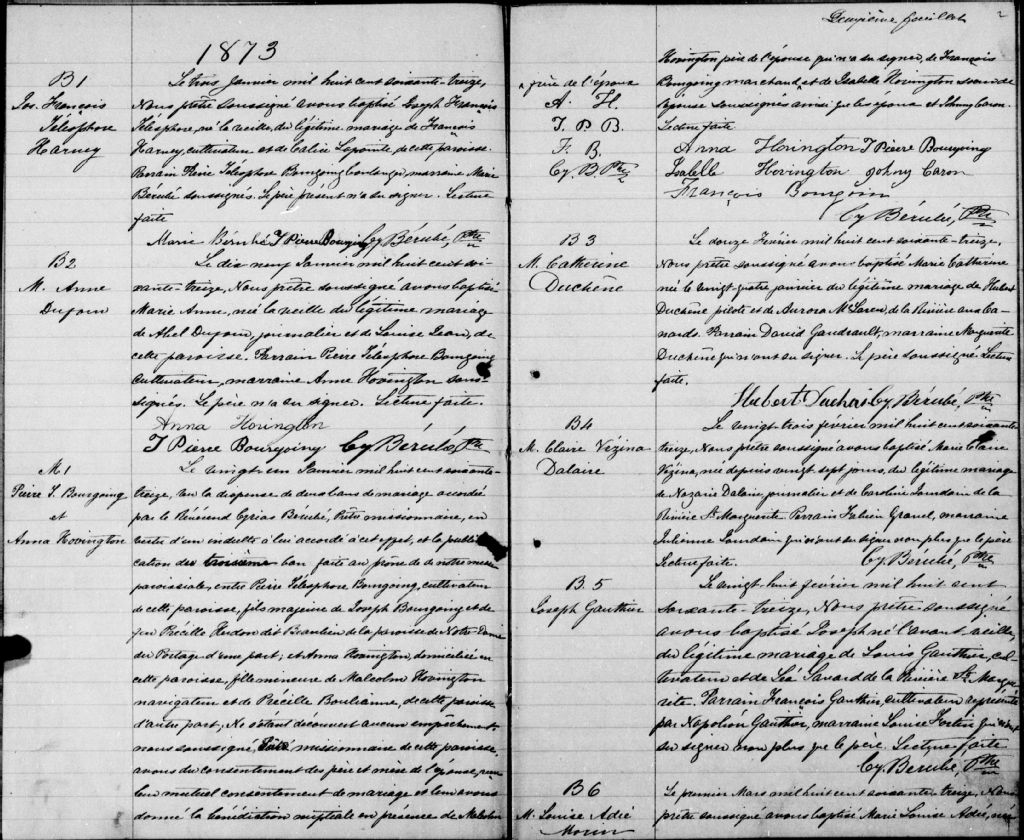 1873
B1
Jos. François
Télésphore
Harvey
Le trois Janvier mil huit cent soixante-treize,
Nous prêtre soussigné avons baptisé Joseph François
Télésphore, né la veille, du légitime mariage de François
Harvey, cultivateur et de Calice Lapointe, de cette paroisse.
Parrain Pierre Télésphore Bourgoing, marraine Marie
Bérubé soussignés. Le père présent n'a su signer. Lecture
faite
Marie Bérubé T Pierre Bourgoing Cy Bérubé, Ptre
B2
M. Anne
Dufour
Le dix neuf Janvier mil huit cent soi-
xante-treize, Nous prêtre soussigné avons baptisé
Marie Anne, née la veille du légitime mariage
de Abel Dufour, journalier et de Louise Jean, de
cette paroisse. Parrain Pierre Télésphore Bourgoing
Cultivateur, marraine Anne Hovington sous-
signés. Le père n'a su signer. Lecture faite.
Anna Hovington
T Pierre Bourgoing Cy Bérubé, Ptre
M.1
Pierre T. Bourgoing
et
Anna Hovington
Le vingt-un Janvier mil huit cent soixante-
treize, vu la dispense de deux bans de mariage accordée
par le Révérend Cyrias Bérubé, Prêtre missionnaire, en
vertu d'un indult à lui accordé à cet effet, et la publi-
cation du troisième ban faite au prône de notre messe
paroissiale, entre Pierre Télésphore Bourgoing, cultivateur
de cette paroisse, fils majeur de Joseph Bourgoing et de
feu Précille Hudon dit Beaulieu de la paroisse de Notre-Dame
du Portage d'une part; et Anna Hovington, domiciliée en
cette paroisse, fille mineure de Malcolm Hovington
navigateur et de Précille Boulianne, de cette paroisse
d'autre part; Ne s'étant découvert aucun empêchement,
nous soussigné, missionnaire de cette paroisse,
avons du consentement des père et mère de l'épouse, reçu
leur mutuel consentement de mariage et leur avons
donné la bénédiction nuptiale en présence de Malcolm
Deuxième feuillet
2
père de l'épouse
A. H.
T. P. B.
F. B.
Cy. B Ptre
Hovington père de l'épouse qui n'a su signer, de François
Bourgoing marchand, et de Isabelle Hovington soeur de
l'épouse soussignés ainsi que les époux et Johnny Caron.
Lecture faite.
Anna Hovington T Pierre Bourgoing
Isabelle Hovington Johnny Caron
François Bourgoin
Cy Bérubé, Ptre
B3
M. Catherine
Duchêne
Le douze Février mil huit cent soixante-treize,
Nous prêtre soussigné avons baptisé Marie Catherine
née le vingt-quatre janvier du légitime mariage de Hubert
Duchêne pilote et de Aurora McLaren, de la Rivière aux Ca-
nards. Parrain David Gaudreault, marraine Marguerite
Duchêne qui n'ont su signer. Le père soussigné. Lecture
faite.
Hubert Cy Bérubé, Ptre
B4
M. Claire Vézina
Dalaire
Le vingt-trois février mil huit cent soixante
treize, Nous prêtre soussigné avons baptisé Marie Claire
Vézina, née depuis vingt sept jours, du légitime mariage
de Nazarie Dalaire, journalier et de Caroline Jourdain de la
Rivière Ste Marguerite. Parrain Fabien Gravel, marraine
Julienne Jourdain qui n'ont su signer non plus que le père
Lecture faite. Cy Bérubé, Ptre
B.5
Joseph Gauthier
Le vingt-huit février mil huit cent
soixante-treize, Nous prêtre soussigné
avons baptisé Joseph né l'avant-veille,
du légitime mariage de Louis Gauthier, cul-
tivateur et de Léa Savard de la Rivière Ste Margue-
rite. Parrain François Gauthier, cultivateur représenté
par Napoléon Gauthier, marraine Louise Fortin qui n'ont
su signer non plus que le père. Lecture faite
Cy. Bérubé, Ptre
B6
M. Louise Adée
Morin
Le premier Mars mil huit cent soixante-treize, Nous
prêtre soussigné avons baptisé Marie Louise Adée, née